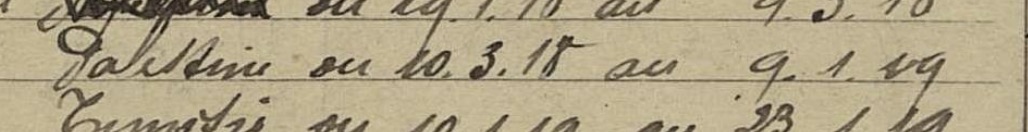 au 9.3.18
Palestine du 10.3.18 au 9.1.19
Tunisie du 10.1.19 au 23.1.19